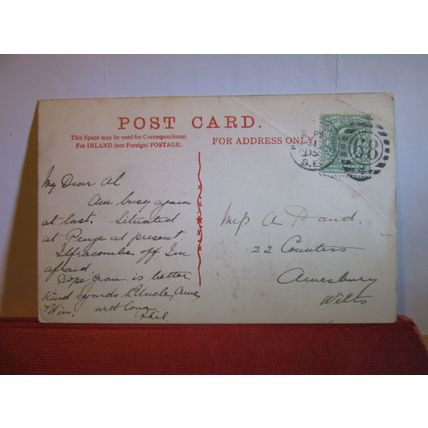 POST CARD.
This Space may be used for Correspondence.
For INLAND (not Foreign) POSTAGE.
FOR ADDRESS ONLY.
68
S.E
My Dear Al
Am busy again
at last. Situated
at Penge at present
Ilfracombe off I'm
afraid
Hope Gran is better
Kind regards to Uncle,
& Win. with love
Phil.
A
22 Countess
Amesbury
Wilts